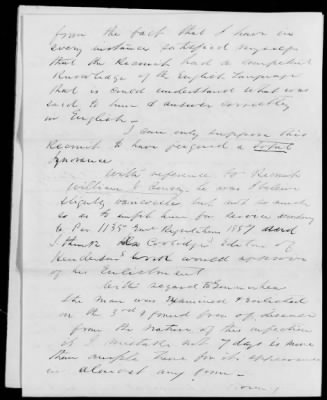 from the fact that I have in
every instance satisfied myself
that the Recruit had a competent
Knowledge of the English Language
that is could understand what was
said to him & answer correctly
in English.
I can only suppose this
Recruit to have feigned a total
Ignorance
With reference to Recruit
William he was I believe
slightly but not so much
so as to unfit him for service according
to Par 1135 Regulation 1857 and
I think Coolidge's Edition of
Henderson's work would approve
of his Enlistment
With regard to
the man was Examined & Enlisted
on the 3rd & found free of disease
from the nature of this infection
if I mistake not 7 days is more
than ample time for its appearance
in almost any form.